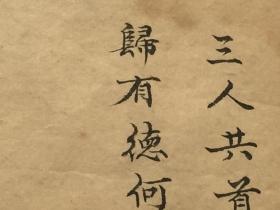 三人共首
歸有德何